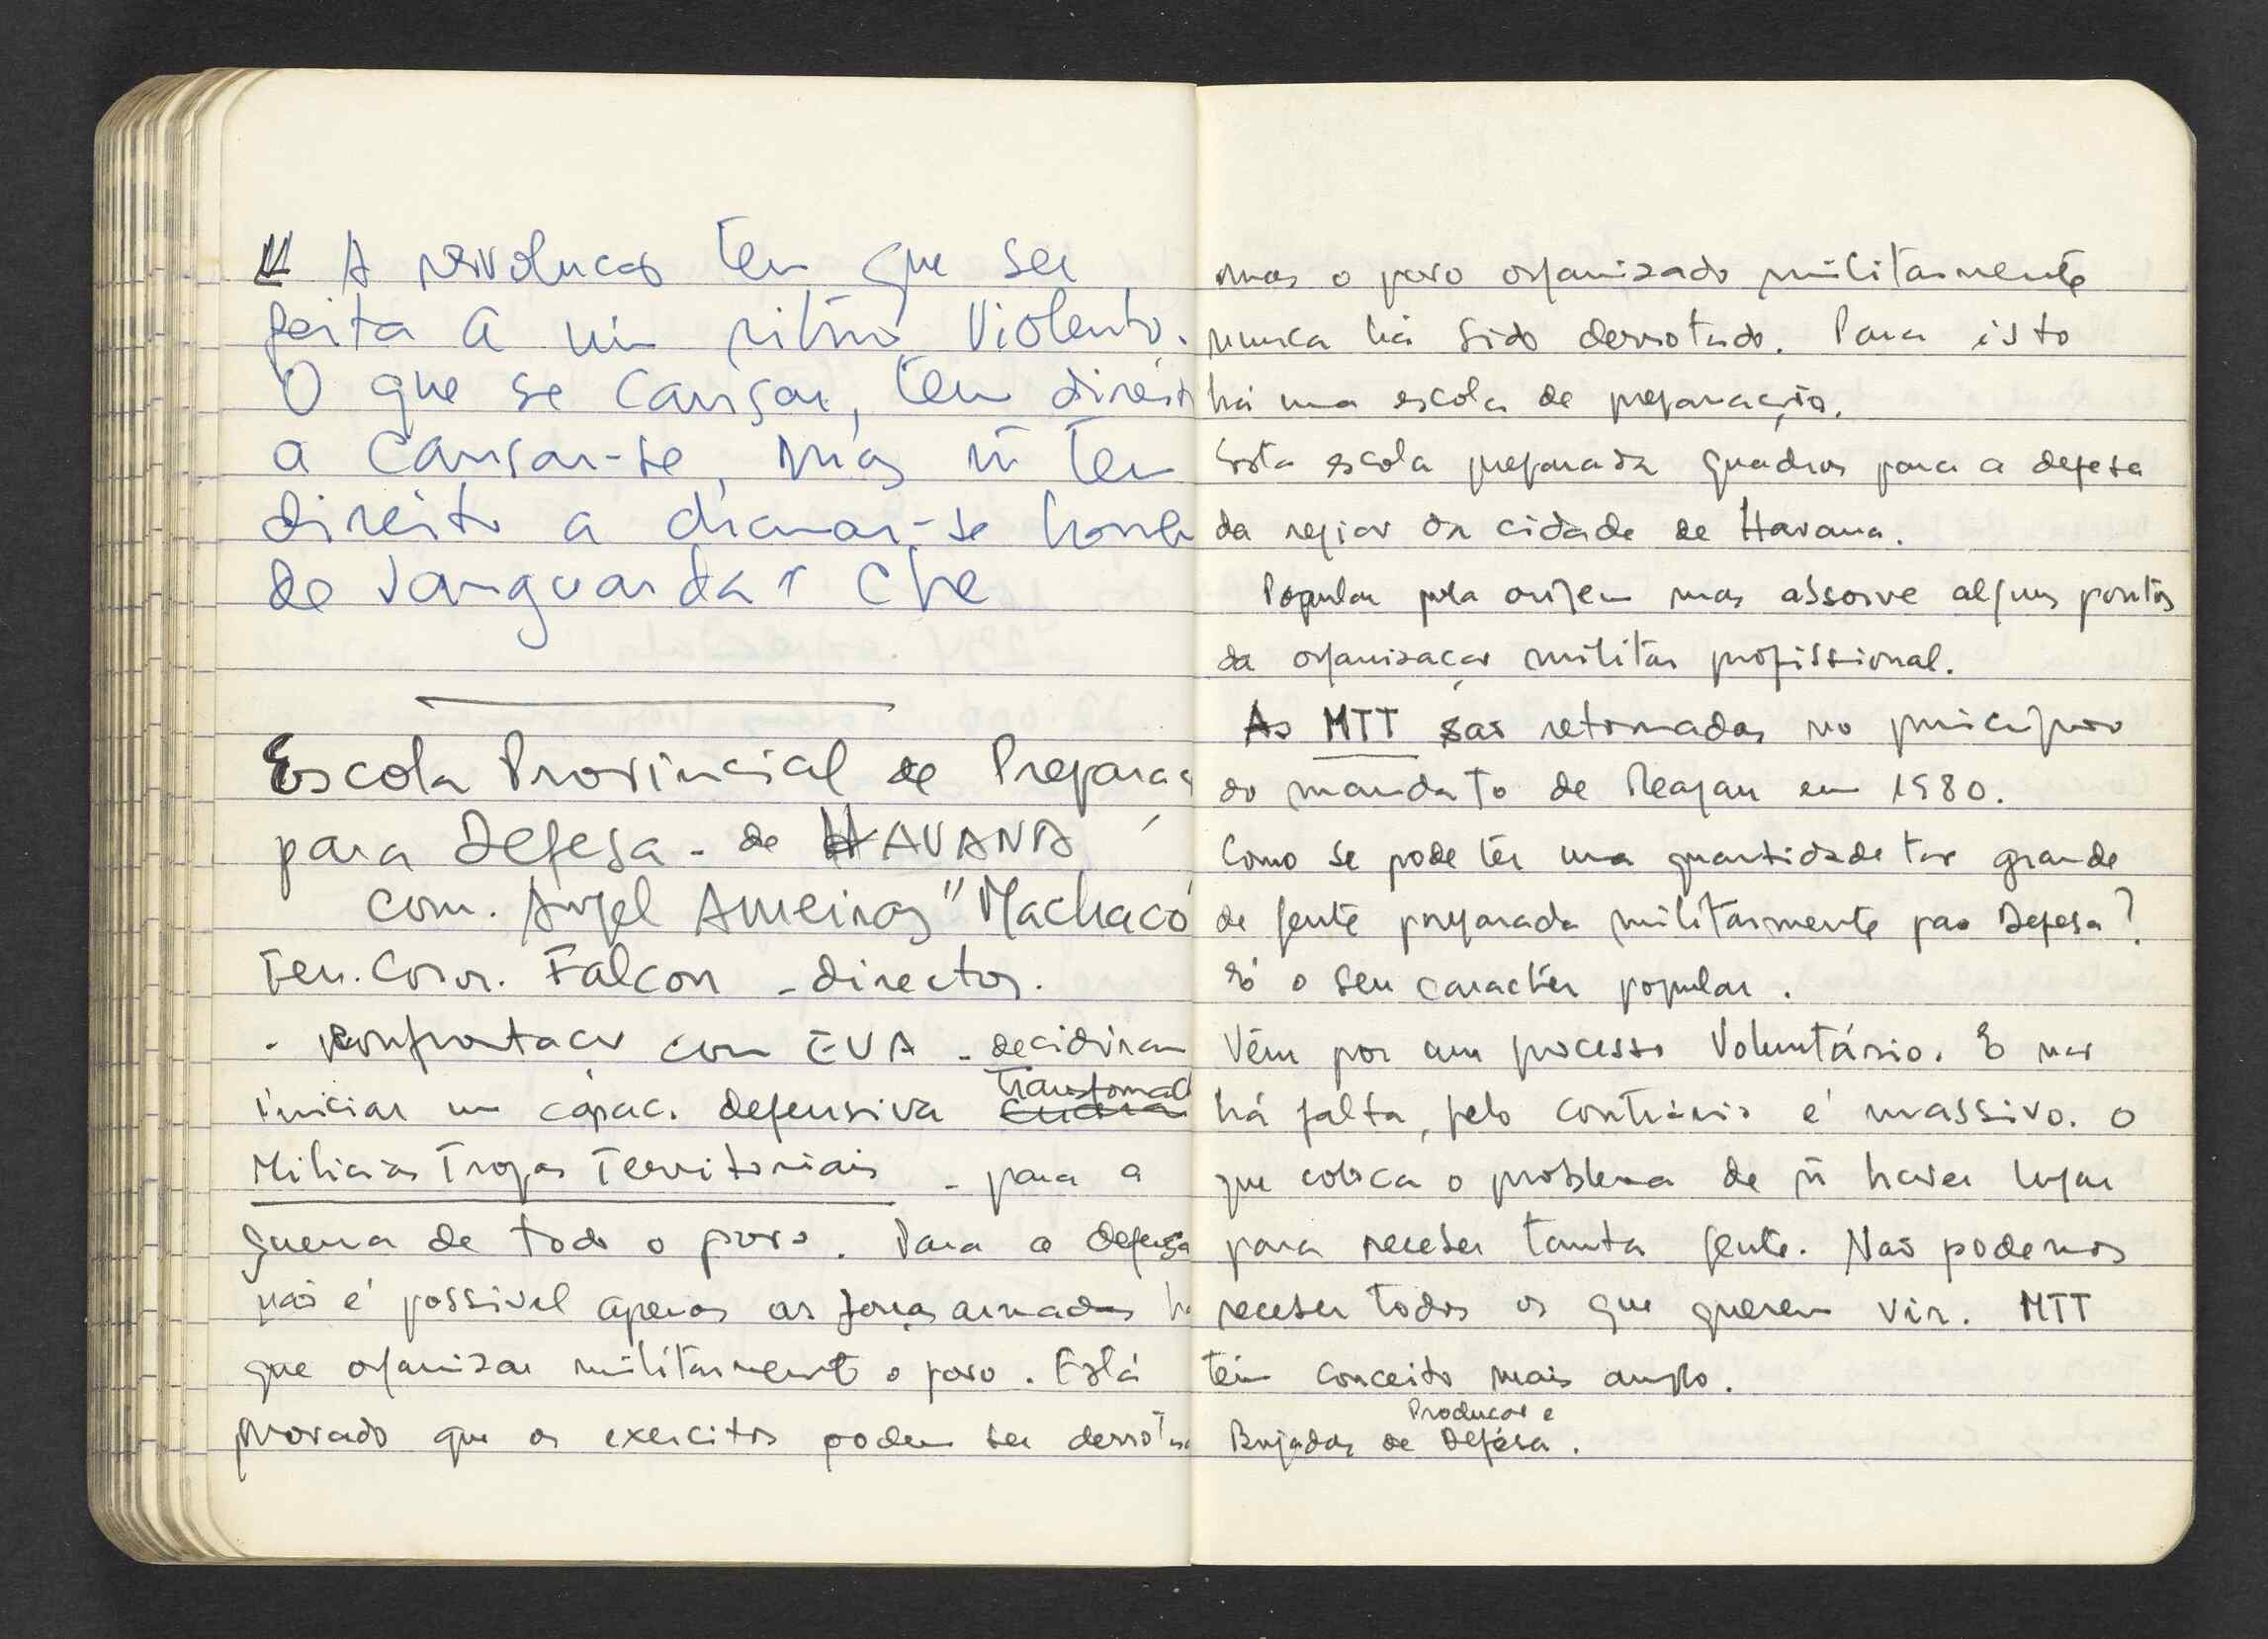 " A revolucao tem que ser
feita a um ritmo violento.
O que se cansar, tem direito
a cansar-se, mas ñ tem
direito a chamar-se home
de vanguarda" Che
Escola Provincial de Preparaç
para Defesa - de HAVANA
com. Angel Ameiras "Machaco
Ten. Coron. Falcon - director.
- confrontacao com EUA - decidiram
iniciar um capac. defensiva transformad
Milicias Tropas Territoriais - para a
guerra de todo o povo. Para a defensa
não é possivel apenas as forças armadas há
que organizar militarmente o povo. Está
provado que os exercitos podem ser derrotad
mas o povo organizado militarmente
nunca há sido derrotado. Para isto
há uma escola de preparação.
Esta escola preparada quadros para a defesa
da regiao da cidade de Havana.
Popular pela origem mas absorve alguns pontos
da organizacao militar profissional.
As MTT são retomadas no principio
do mandato de Reagan em 1980.
Como se pode ter uma quantidade tao grande
de gente preparada militarmente pao Defesa?
Só o seu caracter popular.
Vêm por um processo voluntário. E nao
há falta, pelo contrário é massivo. O
que coloca o problema de ñ haver lugar
para receber tanta gente. Não podemos
receber todos os que querem vir. MTT
têm conceito mais amplo.
Producao e
Brigadas de Defesa.